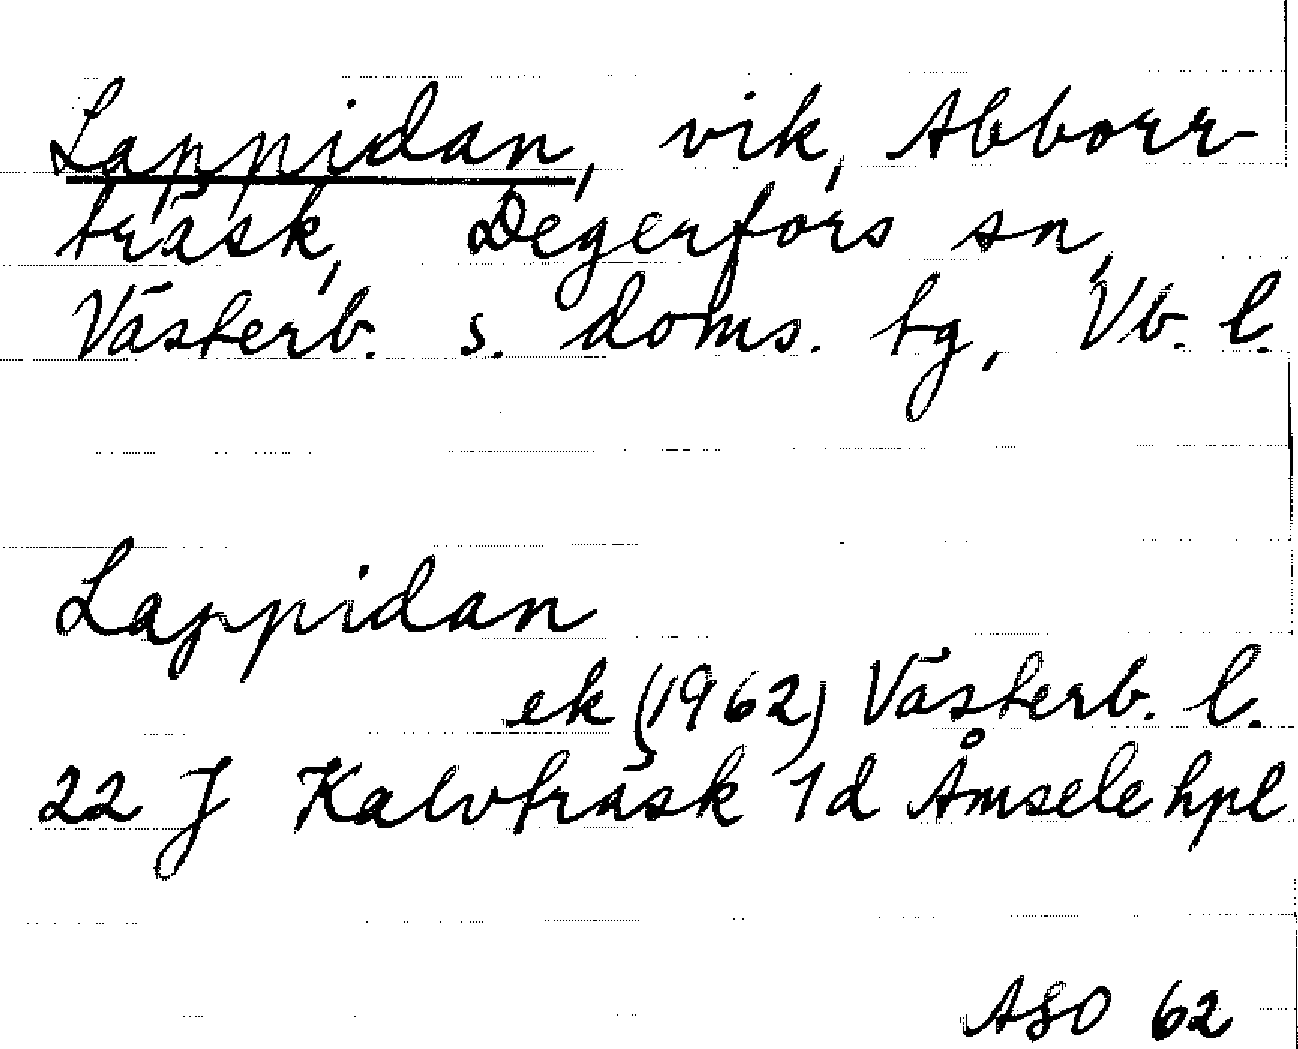 Lappidan, vik, Abborr-
träsk, Degerfors sn,
Västerb. s. doms. tg, Vb. l.
Lappidan
ek (1962) Västerb. l.
22 J Kalvträsk 1d Åmsele hpl
ASO 62